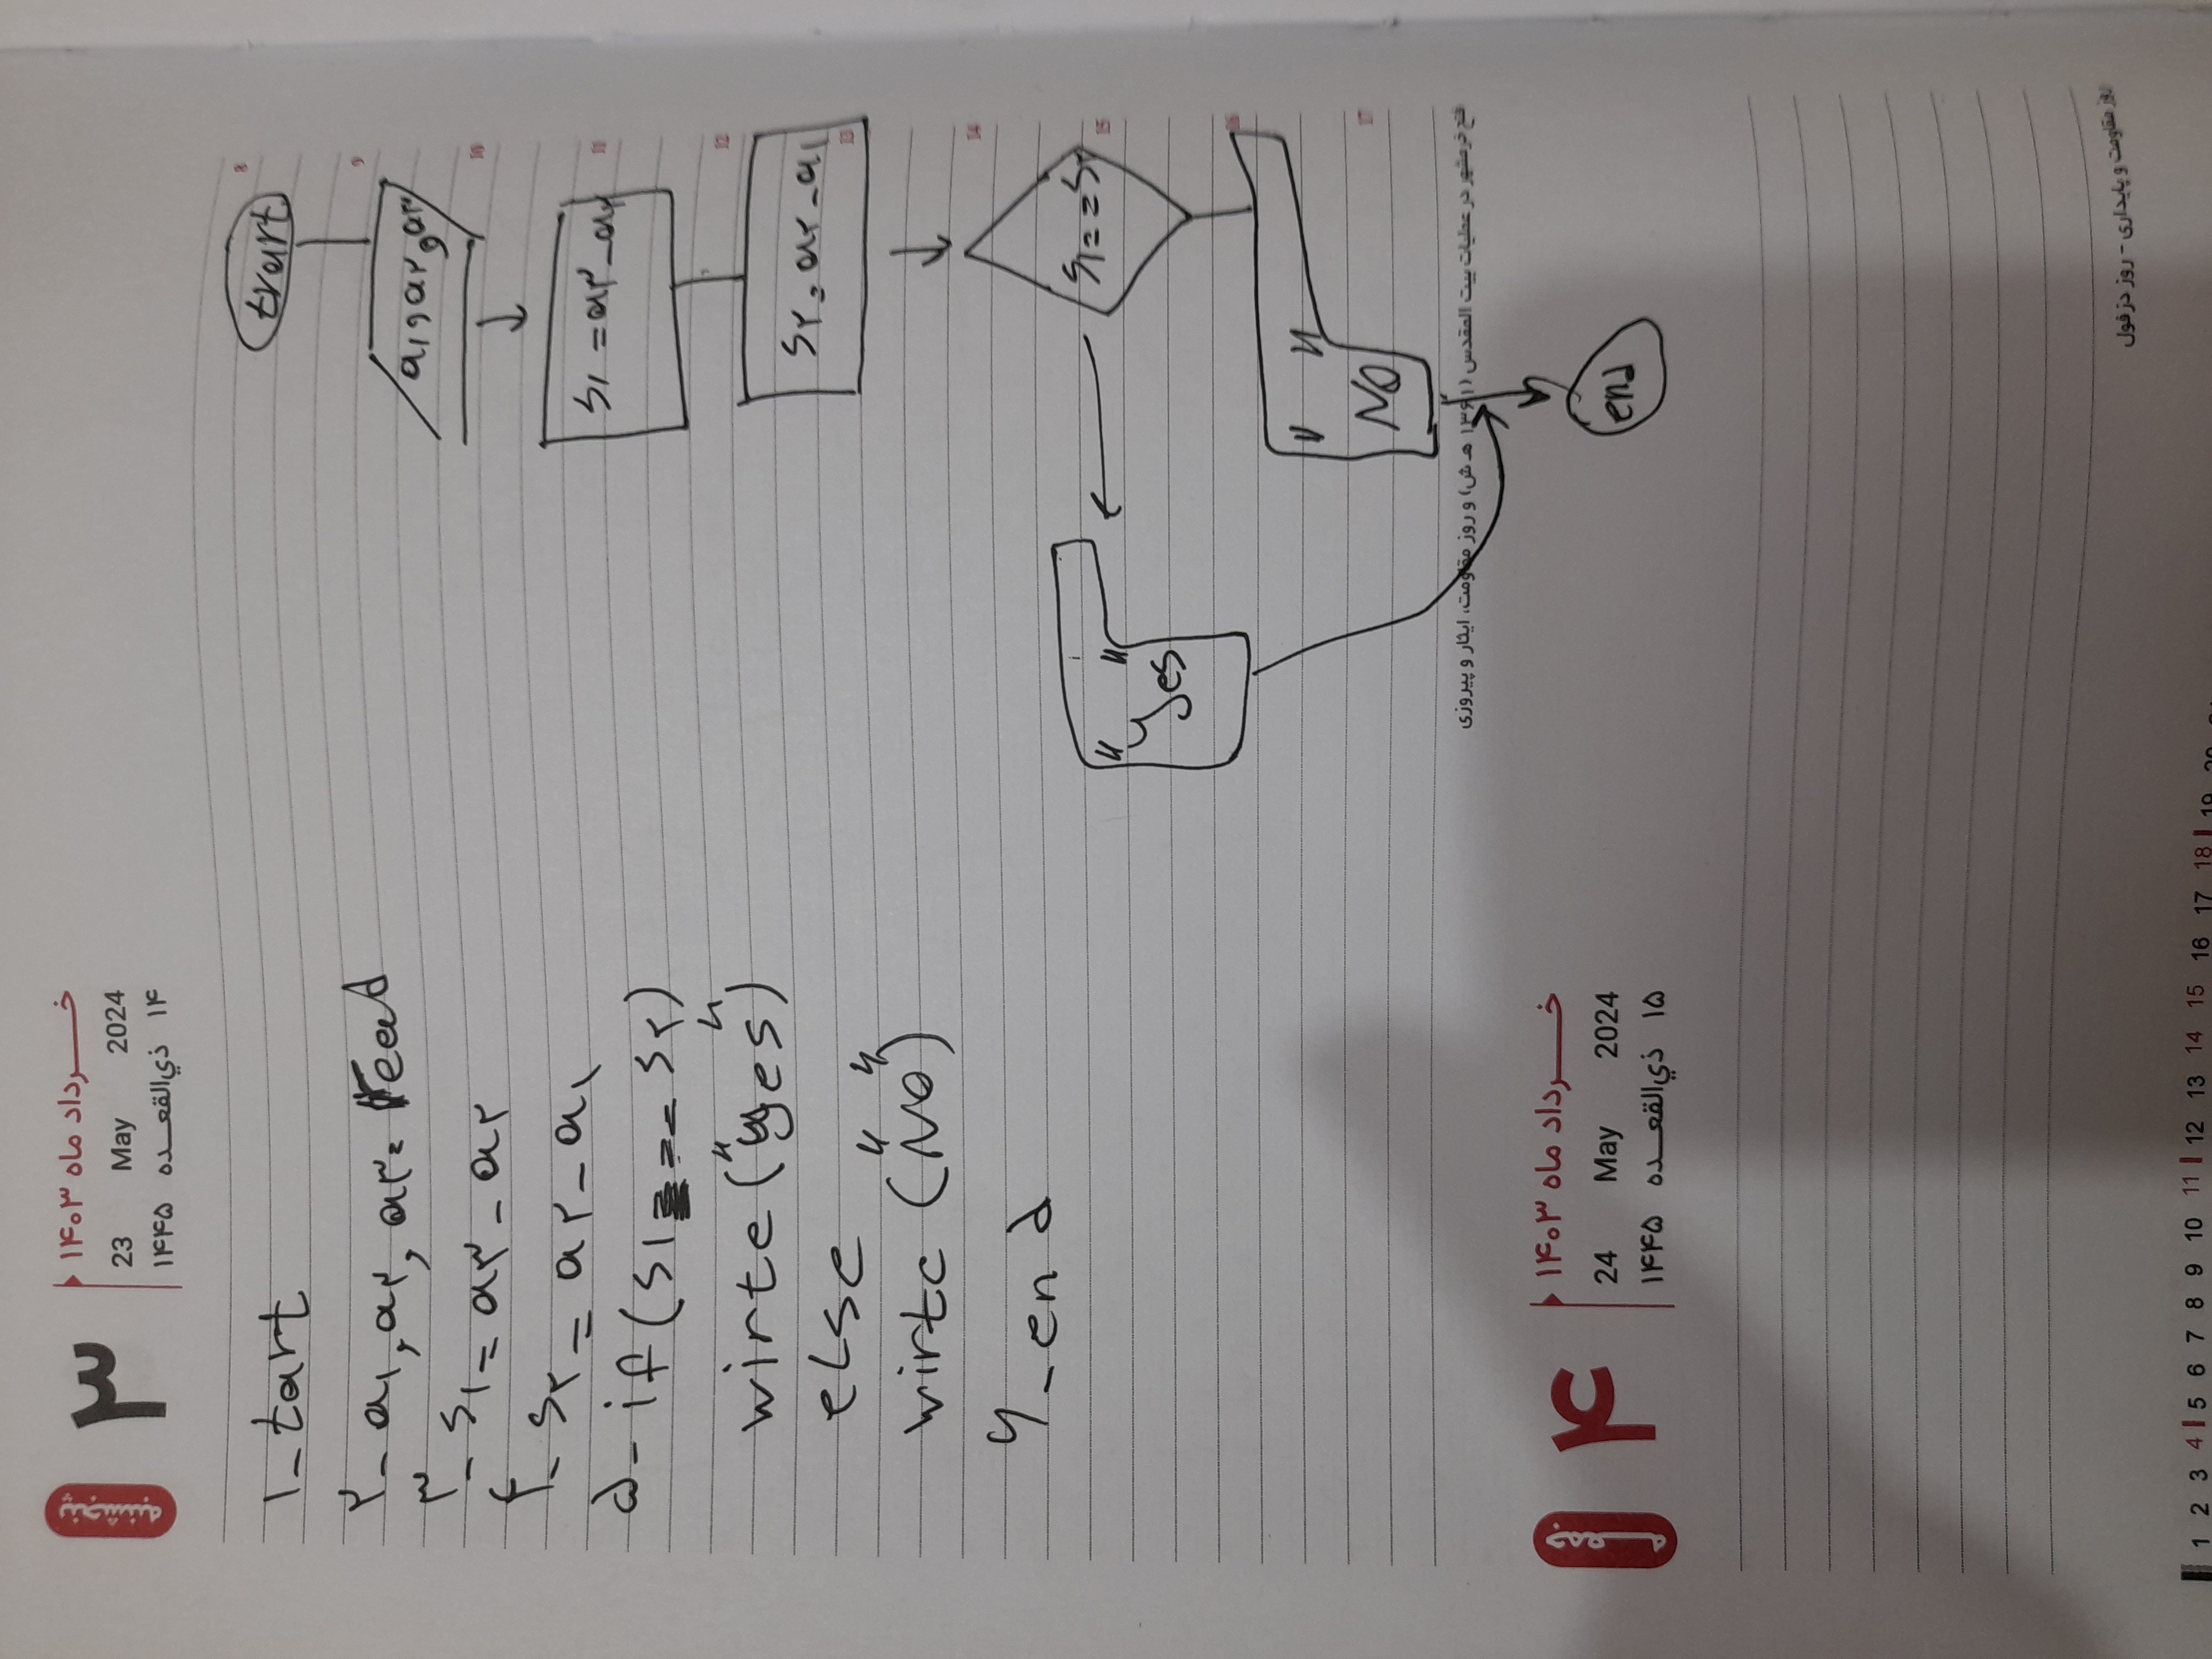 پنجشنبه
۳
خرداد ماه ۱۴۰۳
23 May 2024
۱۴ ذي‌القعده ۱۴۴۵
۱_tart
۲_ a۱, a۲, a۳= read
۳_ s۱ = a۳ _ a۲
۴_ s۲ = a۲ _ a۱
۵_ if (s۱ == s۲)
wirte ("yes")
else
wirte ("NO")
۶_ end
8
trart
9
a۱, a۲, a۳
10
s۱ = a۳ _ a۲
11
12
s۲ = a۲ _ a۱
13
14
s۱ == s۲
15
"yes"
16
"NO"
17
فتح خرمشهر در عملیات بیت المقدس (۱۳۶۱ هـ ش) و روز مقاومت، ایثار و پیروزی
end
جمعه
۴
خرداد ماه ۱۴۰۳
24 May 2024
۱۵ ذي‌القعده ۱۴۴۵
روز مقاومت و پایداری - روز دزفول
1 2 3 4 5 6 7 8 9 10 11 12 13 14 15 16 17 18 19 20